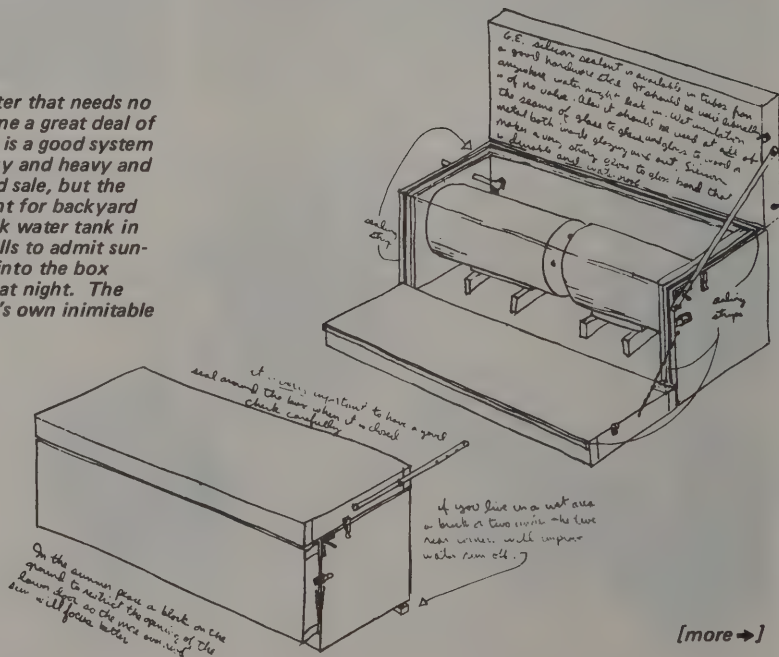 ter that needs no
ne a great deal of
is a good system
y and heavy and
d sale, but the
nt for backyard
k water tank in
lls to admit sun-
into the box
at night. The
's own inimitable
G.E. silicon sealant is available in tubes from
a good hardware store. It should be used liberally
anywhere water might leak in. Wet insulation
is of no value. Also it should be used at all of
the seams of glass to glass and glass to wood or
metal both inside glazing and out. Silicon
makes a very strong glass to glass bond that
is durable and waterproof
sealing
strip
sealing
strips
it is very important to have a good
seal around the box when it is closed
check carefully
if you live in a wet area
a brick or two under the two
rear corners will improve
water run off.
In the summer place a block on the
ground to restrict the opening of the
lower door so the more overhead
sun will focus better
[more ➔]